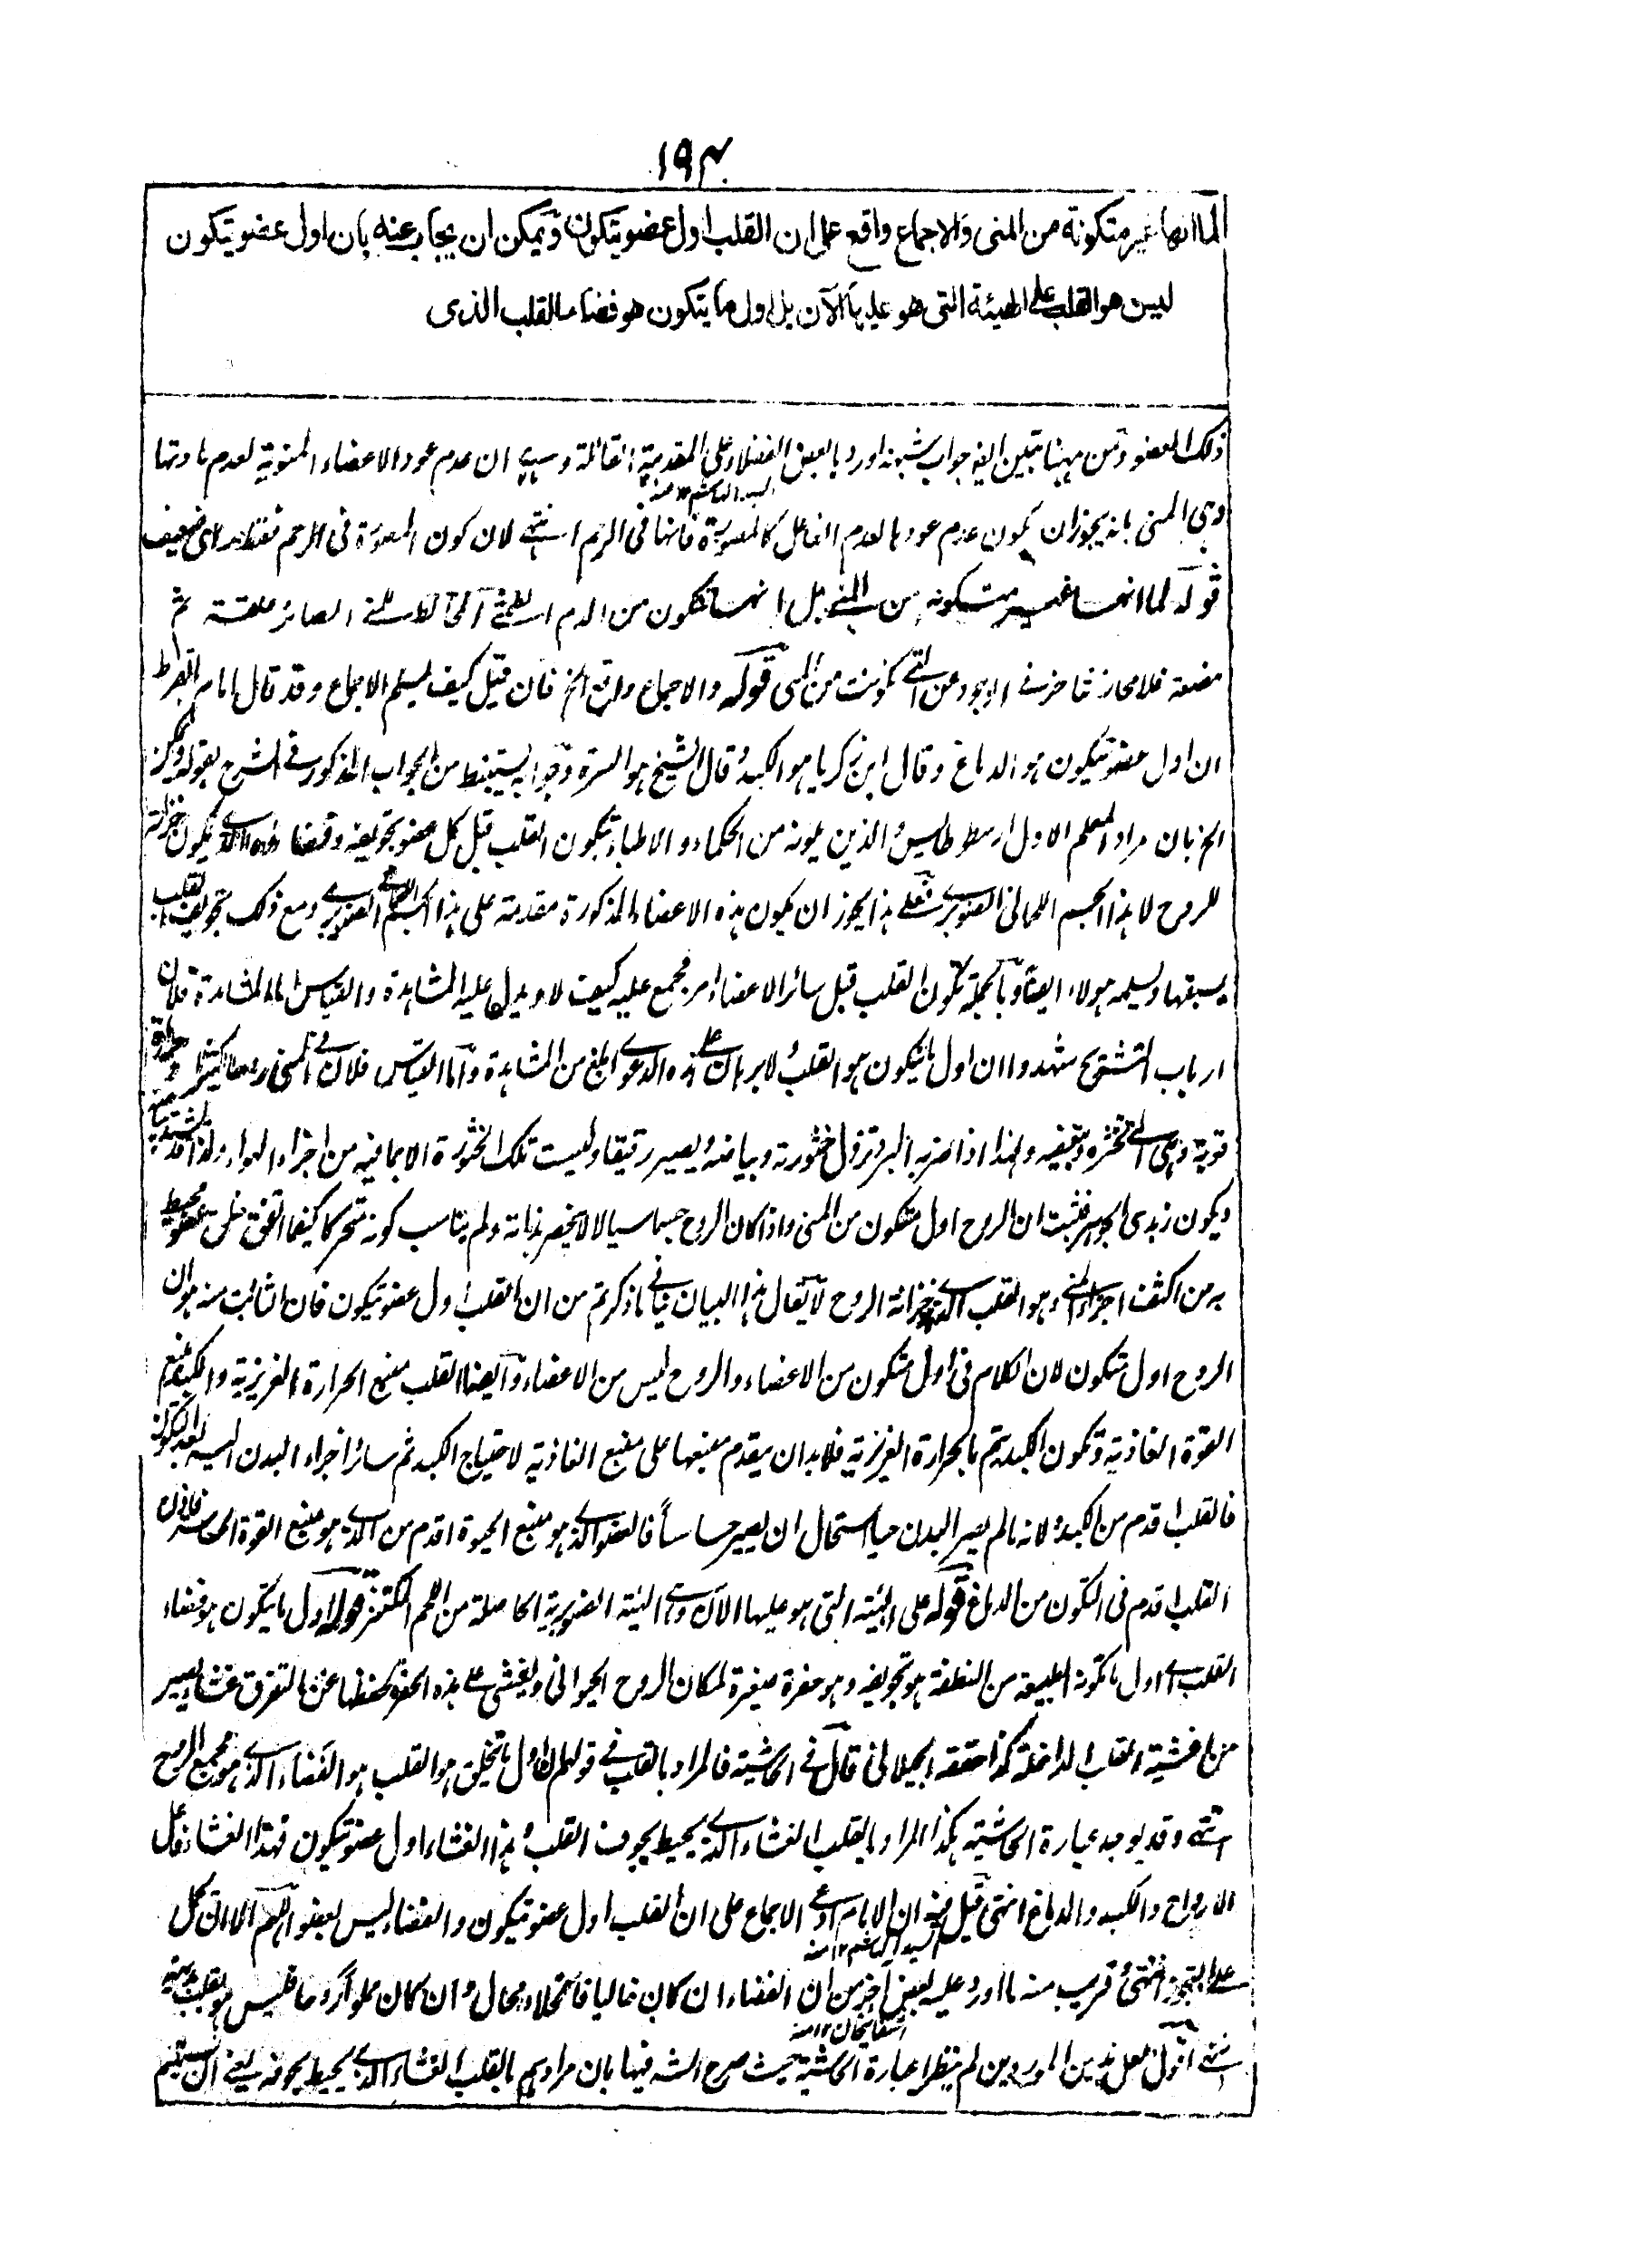 ١٩٤
لما انها غير متكونة من المنى والاجماع واقع على ان القلب اول عضو يتكون ويمكن ان يجاب عنه بان اول عضو يتكون
ليس هو القلب على الهيئة التى هو عليها الآن بل اول ما يتكون هو فضاء القلب الذى
ذلك العضو ومن ههنا تبين الفه جواب شبهة اورد با بعض الفضلاء على المقدمة القائلة وسهى ان عدم عود الاعضاء المنوية لعدم مادتها
وهى المنى بانه يجوز ان يكون عدم عودها لعدم الفاعل كالمصورة فانها فى الرحم انتهى لان كون المصورة فى الرحم فقط راى ضعيف
قوله لما انها غير متكونة من المنى بل انها تتكون من الدم الطمثى الصائر علقة ثم
مضغة فلا محاز تتاخر فى الوجود عن التى تكونت من المنى قوله والاجماع واقع الخ فان قيل كيف يسلم الاجماع وقد قال امام بقراط
ان اول عضو يتكون هو الدماغ وقال ابن زكريا هو الكبد وقال الشيخ هو السرة وجوابه يستنبط من الجواب المذكور فى الشرح بقوله ويمكن
الخ بان مراد المعلم الاول ارسطوطاليس والذين يلونه من الحكماء والاطباء بتكون القلب قبل كل عضو تجويفه وفضاءه الذى يكون خزانة
للروح لا هذا الجسم اللحمانى الصنوبرى فعلى هذا يجوز ان يكون هذه الاعضاء المذكورة مقدمة على هذا الجسم الصنوبرى ومع ذلك تجويف القلب
يسبقها ويسلمه هولاء ايضا وبالجملة تكون القلب قبل سائر الاعضاء امر مجمع عليه كيف لا ويدل عليه المشاهدة والقياس اما المشاهدة فلان
ارباب التشريح شهدوا ان اول ما يتكون هو القلب ولا برهان على هذه الدعوى ابلغ من المشاهدة واما القياس فلان فى المنى روحا كثيرا وحرارة
قوية وهى التى تخثره وتبيضه ولهذا اذا ضربه البرد تزول خثورته وبياضه ويصير رقيقا وليست تلك الخثورة الا بما فيه من اجزاء الهواء ولذا قد
ويكون زبدى الجوهر فثبت ان الروح اول متكون من المنى واذا كان الروح جسما سيالا لا ينحصر بذاته ولم يناسب كونه متحركا كيفما اتفق خلق عضو محيط
به من اكثف اجزاء المنى وهو القلب الذى خزانة الروح لا يقال هذا البيان ينافى ما ذكرتم من ان القلب اول عضو يتكون فان الثابت منه هو ان
الروح اول متكون لان الكلام فى اول متكون من الاعضاء والروح ليس من الاعضاء وايضا القلب منبع الحرارة الغريزية والكبد منبع
القوة الغاذية وتكون الكبد يتم بالحرارة الغريزية فلا بد ان يتقدم منبعها على منبع الغاذية لاحتياج الكبد ثم سائر اجزاء البدن اليه بعد التكون
فالقلب اقدم من الكبد ولانه ما لم يصر البدن حيا استحال ان يصير حساسا فالعضو الذى هو منبع الحيوة اقدم من الذى هو منبع القوة الحاسة فاذن
القلب اقدم فى التكون من الدماغ قوله على الهيئة التى هو عليها الآن وهى الهيئة الصنوبرية الحاصلة من اللحم المكتنز قوله اول ما يتكون هو فضاء
القلب اى اول ما تكونه الطبيعة من النطفة هو تجويفه وهو حفرة صغيرة لمكان الروح الحيوانى ويغشى على هذه الحفرة لحفظها عن التفرق غشاء يصير
من اغشية القلب الداخلة كذا حققه الجيلانى قال فى الحاشية فالمراد بالقلب فى قولهم ان اول ما يتخلق هو القلب هو الفضاء الذى هو مجمع الروح
انتهى وقد يوجد عبارة الحاشية هكذا المراد بالقلب الغشاء الذى يحيط بجوف القلب وهذا الغشاء اول عضو يتكون فهذا الغشاء فعل
الارواح والكبد والدماغ انتهى قيل فيه ان الامام ادعى الاجماع على ان القلب اول عضو يتكون والفضاء ليس بعضو اللهم الا ان يحمل
على التجوز انتهى وقريب منه ما اورد عليه بعض آخر من ان الفضاء ان كان خاليا فالخلاء محال وان كان مملوا روحا فليس هو بقلب
انتهى اقول لعل هذين الموردين لم ينظرا عبارة الحاشية حيث صرح الشه فيها بان مرادهم بالقلب الغشاء الذى يحيط بجوفه يعنى ان